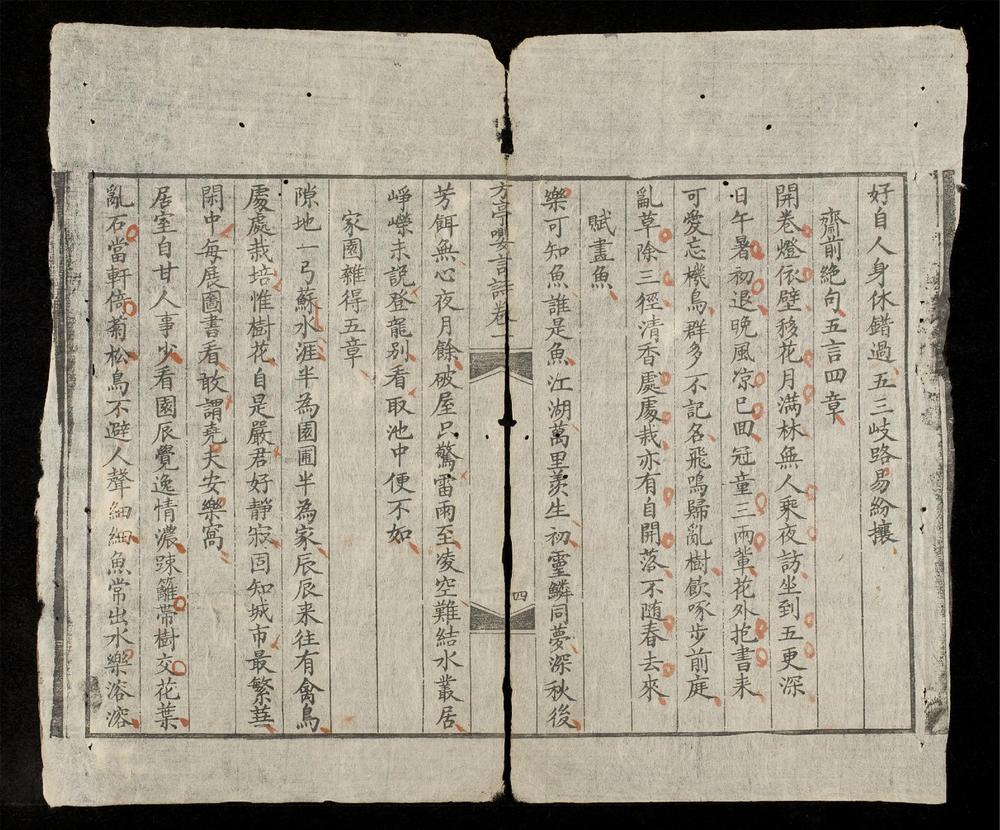 好自人身休錯過五三岐路易紛攘
齋前絶句五言四章
開卷燈依壁移花月滿林無人乘夜訪坐到五更深
日午暑初退晚風凉已回冠童三兩輩花外抱書来
可愛忘機鳥群多不記名飛鳴歸亂樹飲啄步前庭
亂草除三徑清香處處栽亦有自開落不随春去來
賦畫魚
樂可知魚誰是魚江湖萬里羨生初靈鱗同夢深秋後
方亭嬰言詩卷一
四
芳餌無心夜月餘破屋只驚雷雨至凌空難結水叢居
崢嶸未説登龍別看取池中便不如
家園雜得五章
隙地一弓蘇水涯半為園圃半為家辰辰来往有禽鳥
處處栽培惟樹花自是嚴君好靜寂固知城市最繁華
閑中每展圖書看敢謂堯夫安樂窩
居室自甘人事少看園辰覺逸情濃踈籬帶樹交花葉
亂石當軒倚菊松鳥不避人聲細細魚常出水樂溶溶